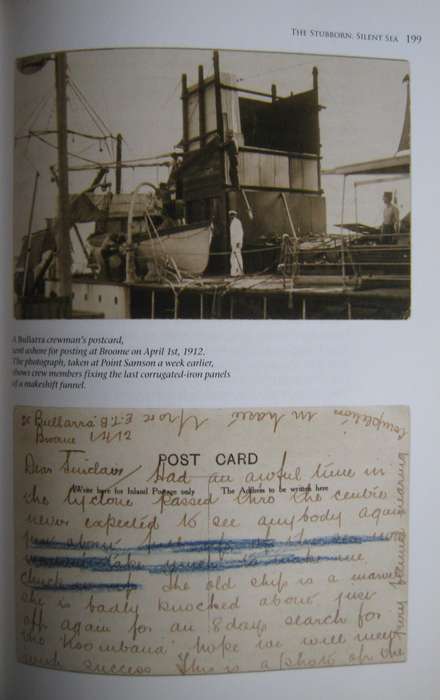 THE STUBBORN, SILENT SEA 199
A Bullarra crewman's postcard,
sent ashore for posting at Broome on April 1st, 1912.
The photograph, taken at Point Samson a week earlier,
shows crew members fixing the last corrugated-iron panels
of a makeshift funnel.
Bullarra
Broome 1.4.12
POST CARD
Write here for Inland Postage only The Address to be written here
Dear Sinclair, Had an awful time in
the cyclone passed thro the centre
never expected to see anybody again
the old ship is a marvel
she is badly knocked about just
off again for an 8 days search for
the 'Koombana' hope we will meet
with success This is a photo of the
funnel nearing
completion